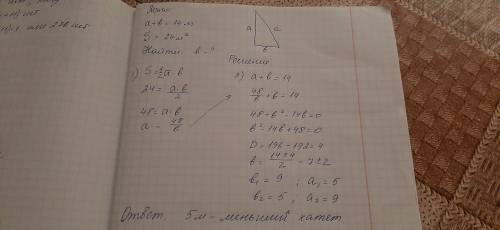 Дано:
a+b = 14 м
S = 24 м²
Найти: b - ?
a
c
b
Решение
1) S = ½ a·b
24 = a·b/2
48 = a·b
a = 48/b
2) a + b = 14
48/b + b = 14
48 + b² - 14b = 0
b² - 14b + 48 = 0
D = 196 - 192 = 4
b = 14±4/2 = 7±2
b₁ = 9 ; a₁ = 5
b₂ = 5 ; a₂ = 9
Ответ: 5м - меньший катет